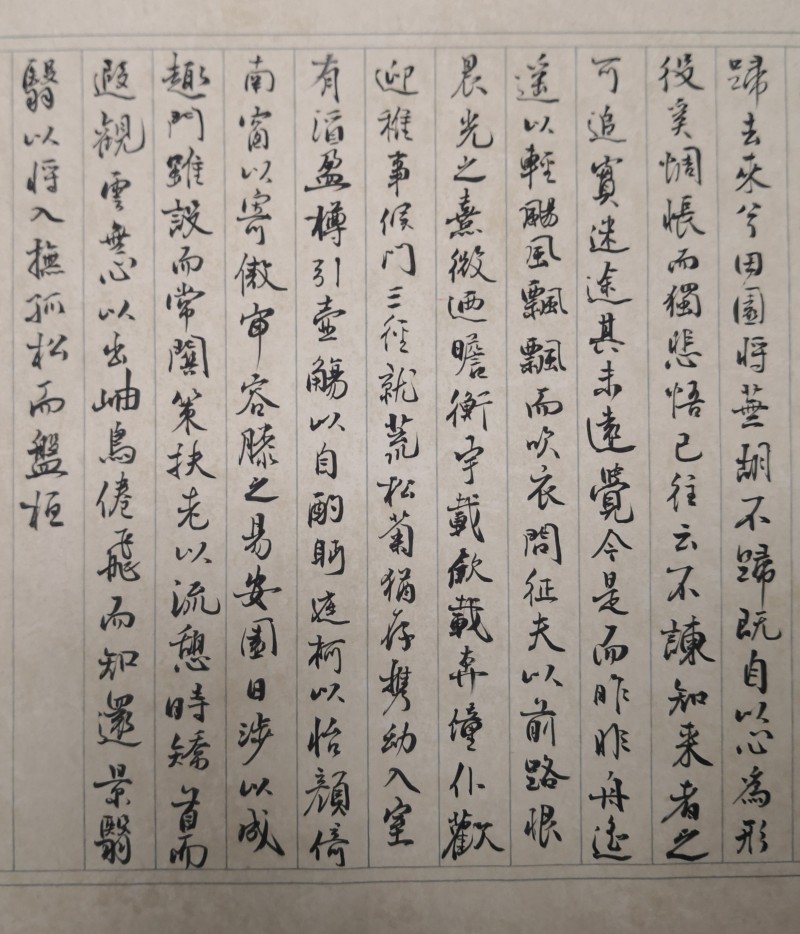 歸去來兮田園將蕪胡不歸既自以心為形
役奚惆悵而獨悲悟已往云不諫知来者之
可追實迷途其未遠覺今是而昨昨舟遙
遙以輕颺風飄飄而吹衣問征夫以前路恨
晨光之熹微迺瞻衡宇載欣載奔僮仆歡
迎稚事候門三徑就荒松菊猶存携幼入室
有酒盈樽引壺觴以自酌眄庭柯以怡顏倚
南窗以寄傲审容膝之易安園日涉以成
趣門雖設而常關策扶老以流憩時矯首而
遐觀雲無心以出岫鳥倦飛而知還景翳
翳以將入撫孤松而盤桓